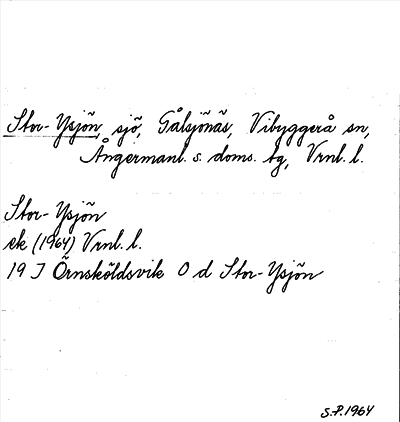 Stor-Ysjön, sjö, Gålsjönäs, Vibyggerå sn,
Ångermanl. s. doms. tg, Vrnl. l.
Stor-Ysjön
ek (1964) Vrnl. l.
19 J Örnsköldsvik O d Stor-Ysjön
S.P. 1964